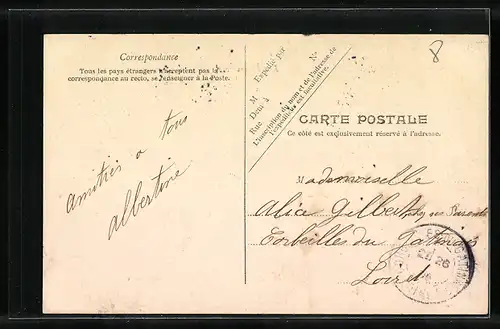 Correspondance
Tous les pays étrangers n'acceptent pas la
correspondance au recto, se renseigner à la Poste.
amitiés a tous
Albertine
Expédié par
M
N°
Demt à
Rue
L'inscription du nom et de l'adresse de
l'expéditeur est facultative.
8
CARTE POSTALE
Ce côté est exclusivement réservé à l'adresse.
Mademoiselle
Alice Gilbert chez ses Parents
Corbeilles du Gatinais
Loiret